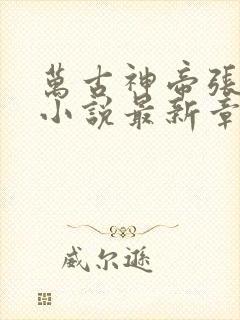 萬古神帝張
小說最新章
威尔遜